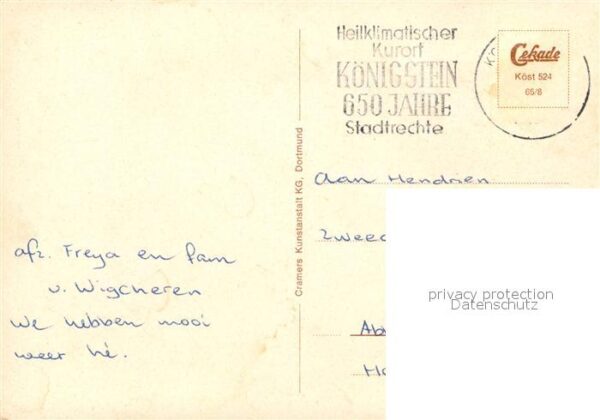 Heilklimatischer
Kurort
KÖNIGSTEIN
650 JAHRE
Stadtrechte
Cekade
Köst 524
65/8
Cramers Kunstanstalt KG, Dortmund
Aan Hendrien
afz. Freya en fam
v. Wigcheren
We hebben mooi
weer hè.
privacy protection
Datenschutz